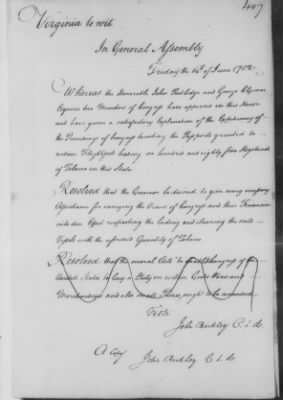 407
Virginia to wit
In General Assembly
Friday the 14th of June 1782
Whereas the Honorable John Rutledge and George Clymer
Esquires two Members of Congress have appeared in this House
and have given a satisfactory Explanation of the Expediency of
the Proceedings of Congress touching the Passports granted to
certain Flagships lading one hundred and eighty five Hogsheads
of Tobacco in this State
Resolved that the Governor be desired to give every necessary
Assistance for carrying the Views of Congress and their Financier
into due Effect respecting the lading and clearing the said
Vessels with the aforesaid Quantity of Tobacco
Resolved that the several Acts to Congress of the
United States to lay a Duty on certain Goods Wares and
Merchandizes and also on all Prizes, ought to be
Teste
John Beckley C. h. d.
A Copy John Beckley C h d